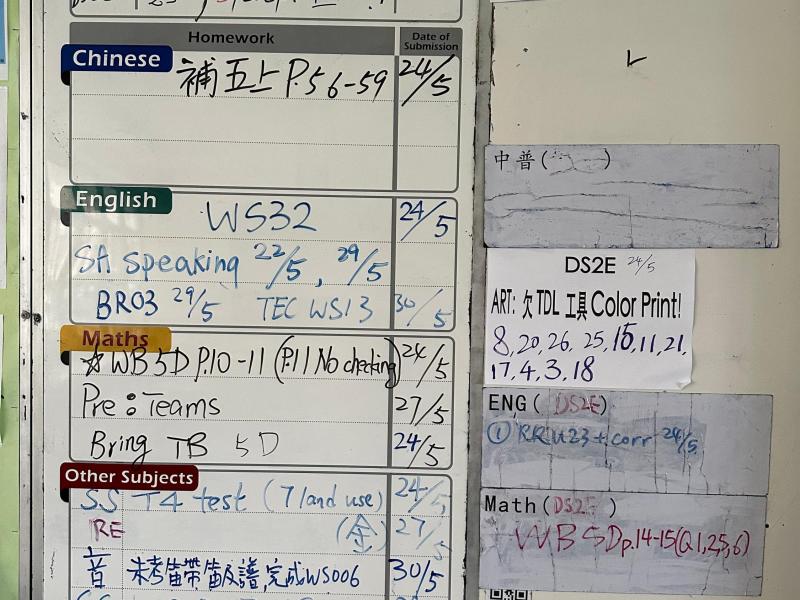 Homework
Date of Submission
Chinese
補五上 P.56-59 24/5
English
WS32 24/5
SA speaking 22/5, 29/5
BR03 29/5 TEC WS13 30/5
Maths
☆ WB 5D P.10-11 (P.11 No checking) 24/5
Pre: Teams 27/5
Bring TB 5D 24/5
Other Subjects
SS T4 test (7 land use) 24/5
RE (金) 27/5
音 未考笛帶笛及譜,完成WS006 30/5
中普( )
DS2E 24/5
ART: 欠 TDL 工具 Color Print!
8, 20, 26, 25, 15, 11, 21,
17, 4, 3, 18
ENG( DS2E)
① RR U23 + corr 24/5
Math(DS2E )
WB 5D p.14-15(Q1,2,5,6)